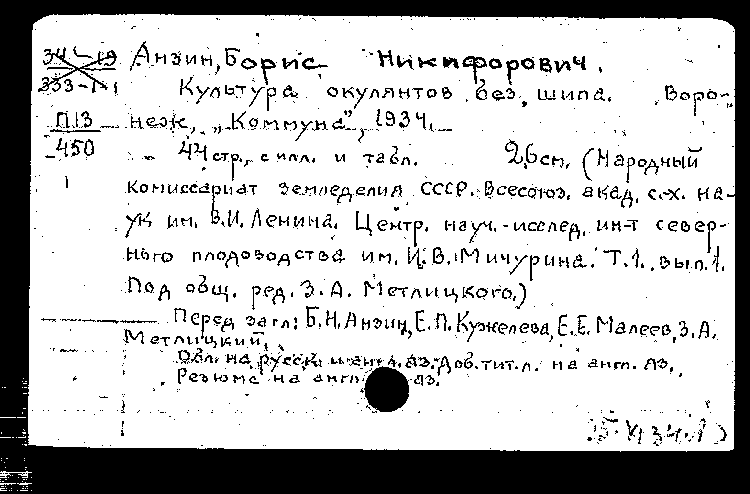 34-19 Анзин, Борис Никифорович.
333-1-1 Культура окулянтов без шипа. Воро-
П13 неж, „Коммуна", 1934.
450 44 стр., с илл. и табл. 26 см. (Народный
комиссариат земледелия СССР. Всесоюз. акад. с.-х. на-
ук им. В.И. Ленина. Центр. науч.-исслед. ин-т север-
ного плодоводства им. И.В. Мичурина. Т.1. вып.1.
Под общ. ред. З.А. Метлицкого.)
Перед загл: Б.Н. Анзин, Е.П. Кужелева, Е.Е. Малеев, З.А.
Метлицкий.
Обл. на русск. и англ. яз. Доб. тит. л. на англ. яз.
Резюме на англ. яз.